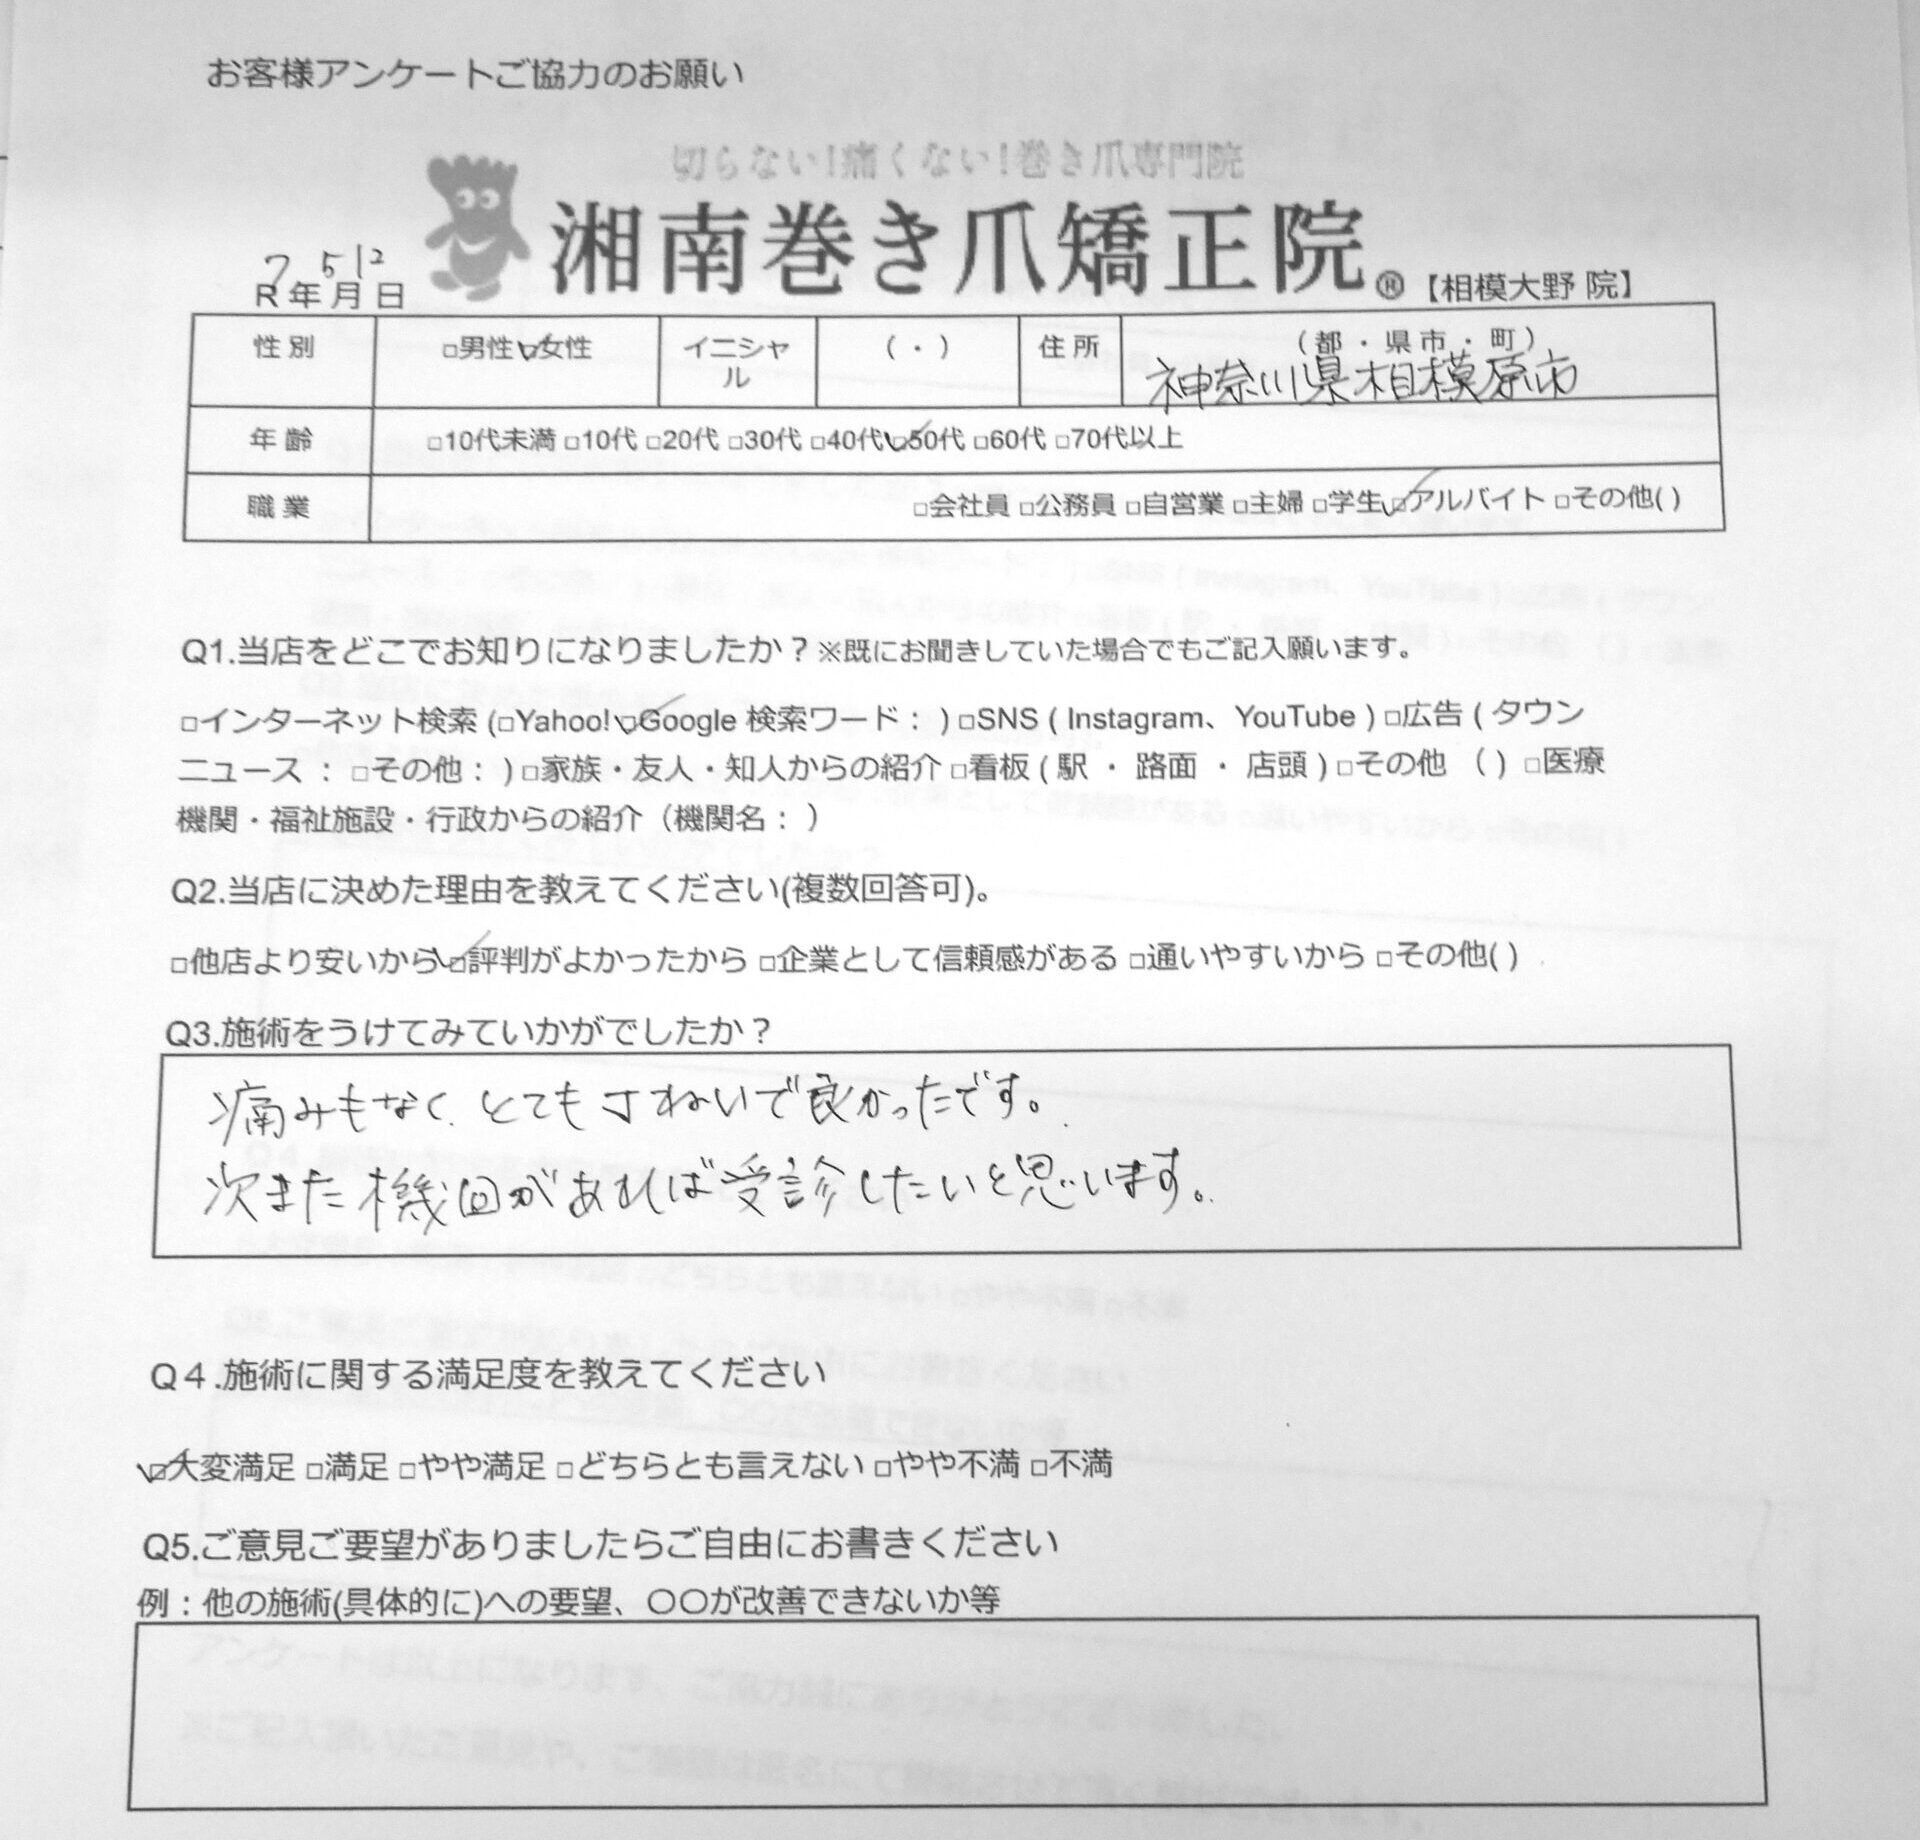 お客様アンケートご協力のお願い
切らない!痛くない!巻き爪専門院
湘南巻き爪矯正院® 【相模大野 院】
7 5 12
R年月日
性別 □男性 ☑女性 イニシャル ( ・ ) 住所 ( 都 ・ 県 市 ・ 町 )
神奈川県相模原市
年齢 □10代未満 □10代 □20代 □30代 □40代 ☑50代 □60代 □70代以上
職業 □会社員 □公務員 □自営業 □主婦 □学生 ☑アルバイト □その他( )
Q1.当店をどこでお知りになりましたか？※既にお聞きしていた場合でもご記入願います。
□インターネット検索 (□Yahoo! ☑Google 検索ワード： ) □SNS ( Instagram、YouTube ) □広告 ( タウン
ニュース ： □その他： ) □家族・友人・知人からの紹介 □看板 ( 駅 ・ 路面 ・ 店頭 ) □その他 （ ) □医療
機関・福祉施設・行政からの紹介（機関名： ）
Q2.当店に決めた理由を教えてください(複数回答可)。
□他店より安いから ☑評判がよかったから □企業として信頼感がある □通いやすいから □その他( )
Q3.施術をうけてみていかがでしたか？
痛みもなく、とても き れいで良かったです。
次また機回があれば受診したいと思います。
Q４.施術に関する満足度を教えてください
☑大変満足 □満足 □やや満足 □どちらとも言えない □やや不満 □不満
Q5.ご意見ご要望がありましたらご自由にお書きください
例：他の施術(具体的に)への要望、〇〇が改善できないか等